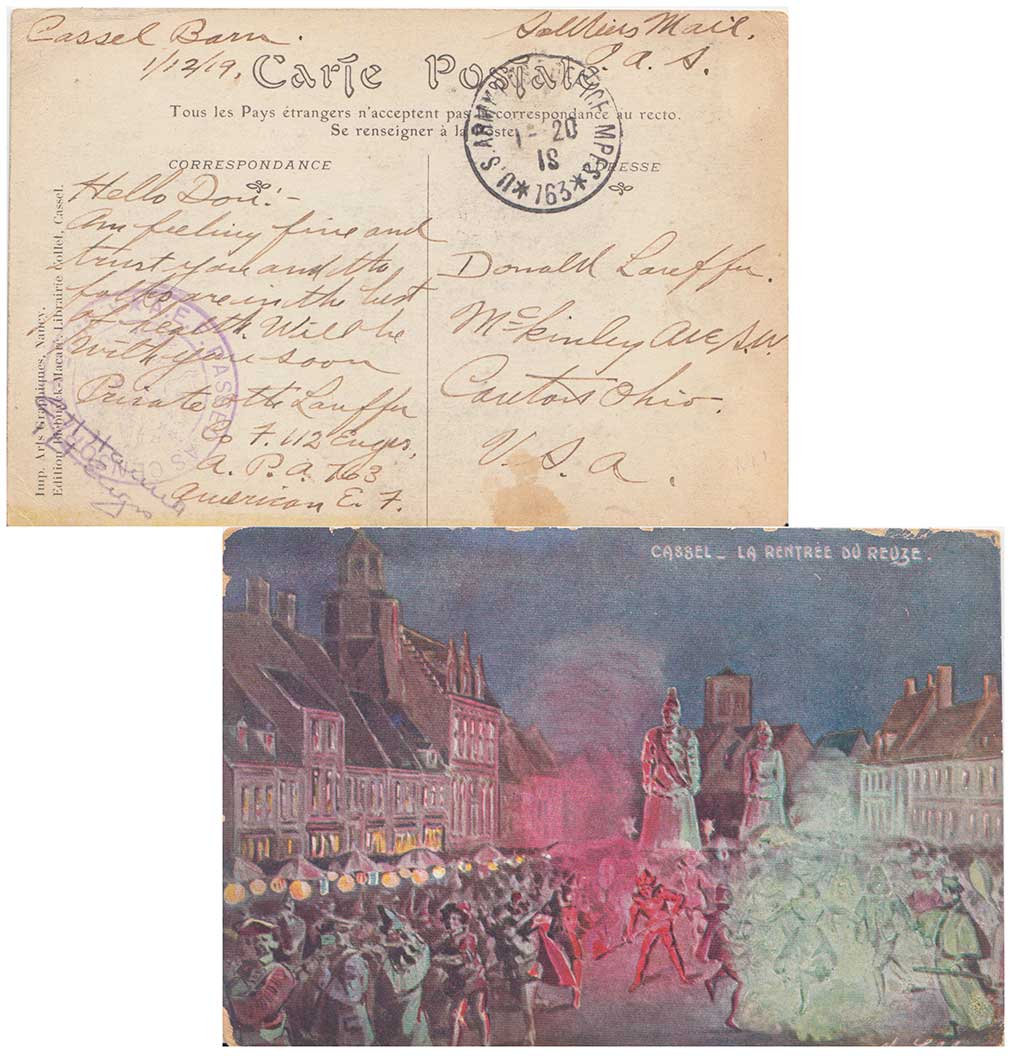 Cassel Barn.
1/12/19.
Soldiers Mail.
P. A. S.
Carte Postale.
Tous les Pays étrangers n'acceptent pas la correspondance au recto.
Se renseigner à la Poste
CORRESPONDANCE
ADRESSE
U.S. ARMY M.P.E.S. 763
1-20
18
Hello Don:-
Am feeling fine and
trust you and the
folks are in the best
of health. Will be
with you soon
Private Lauffer
Co F. 112 Engrs,
A. P. A. 763
American E. F.
Donald Lauffer.
McKinley Ave S.W.
Canton Ohio.
U. S. A.
A.E.F. PASSED AS CENSORED
Imp. Arts Graphiques, Nancy.
Edition Librairie Collet, Cassel.
CASSEL _ LA RENTRÉE DU REUZE.